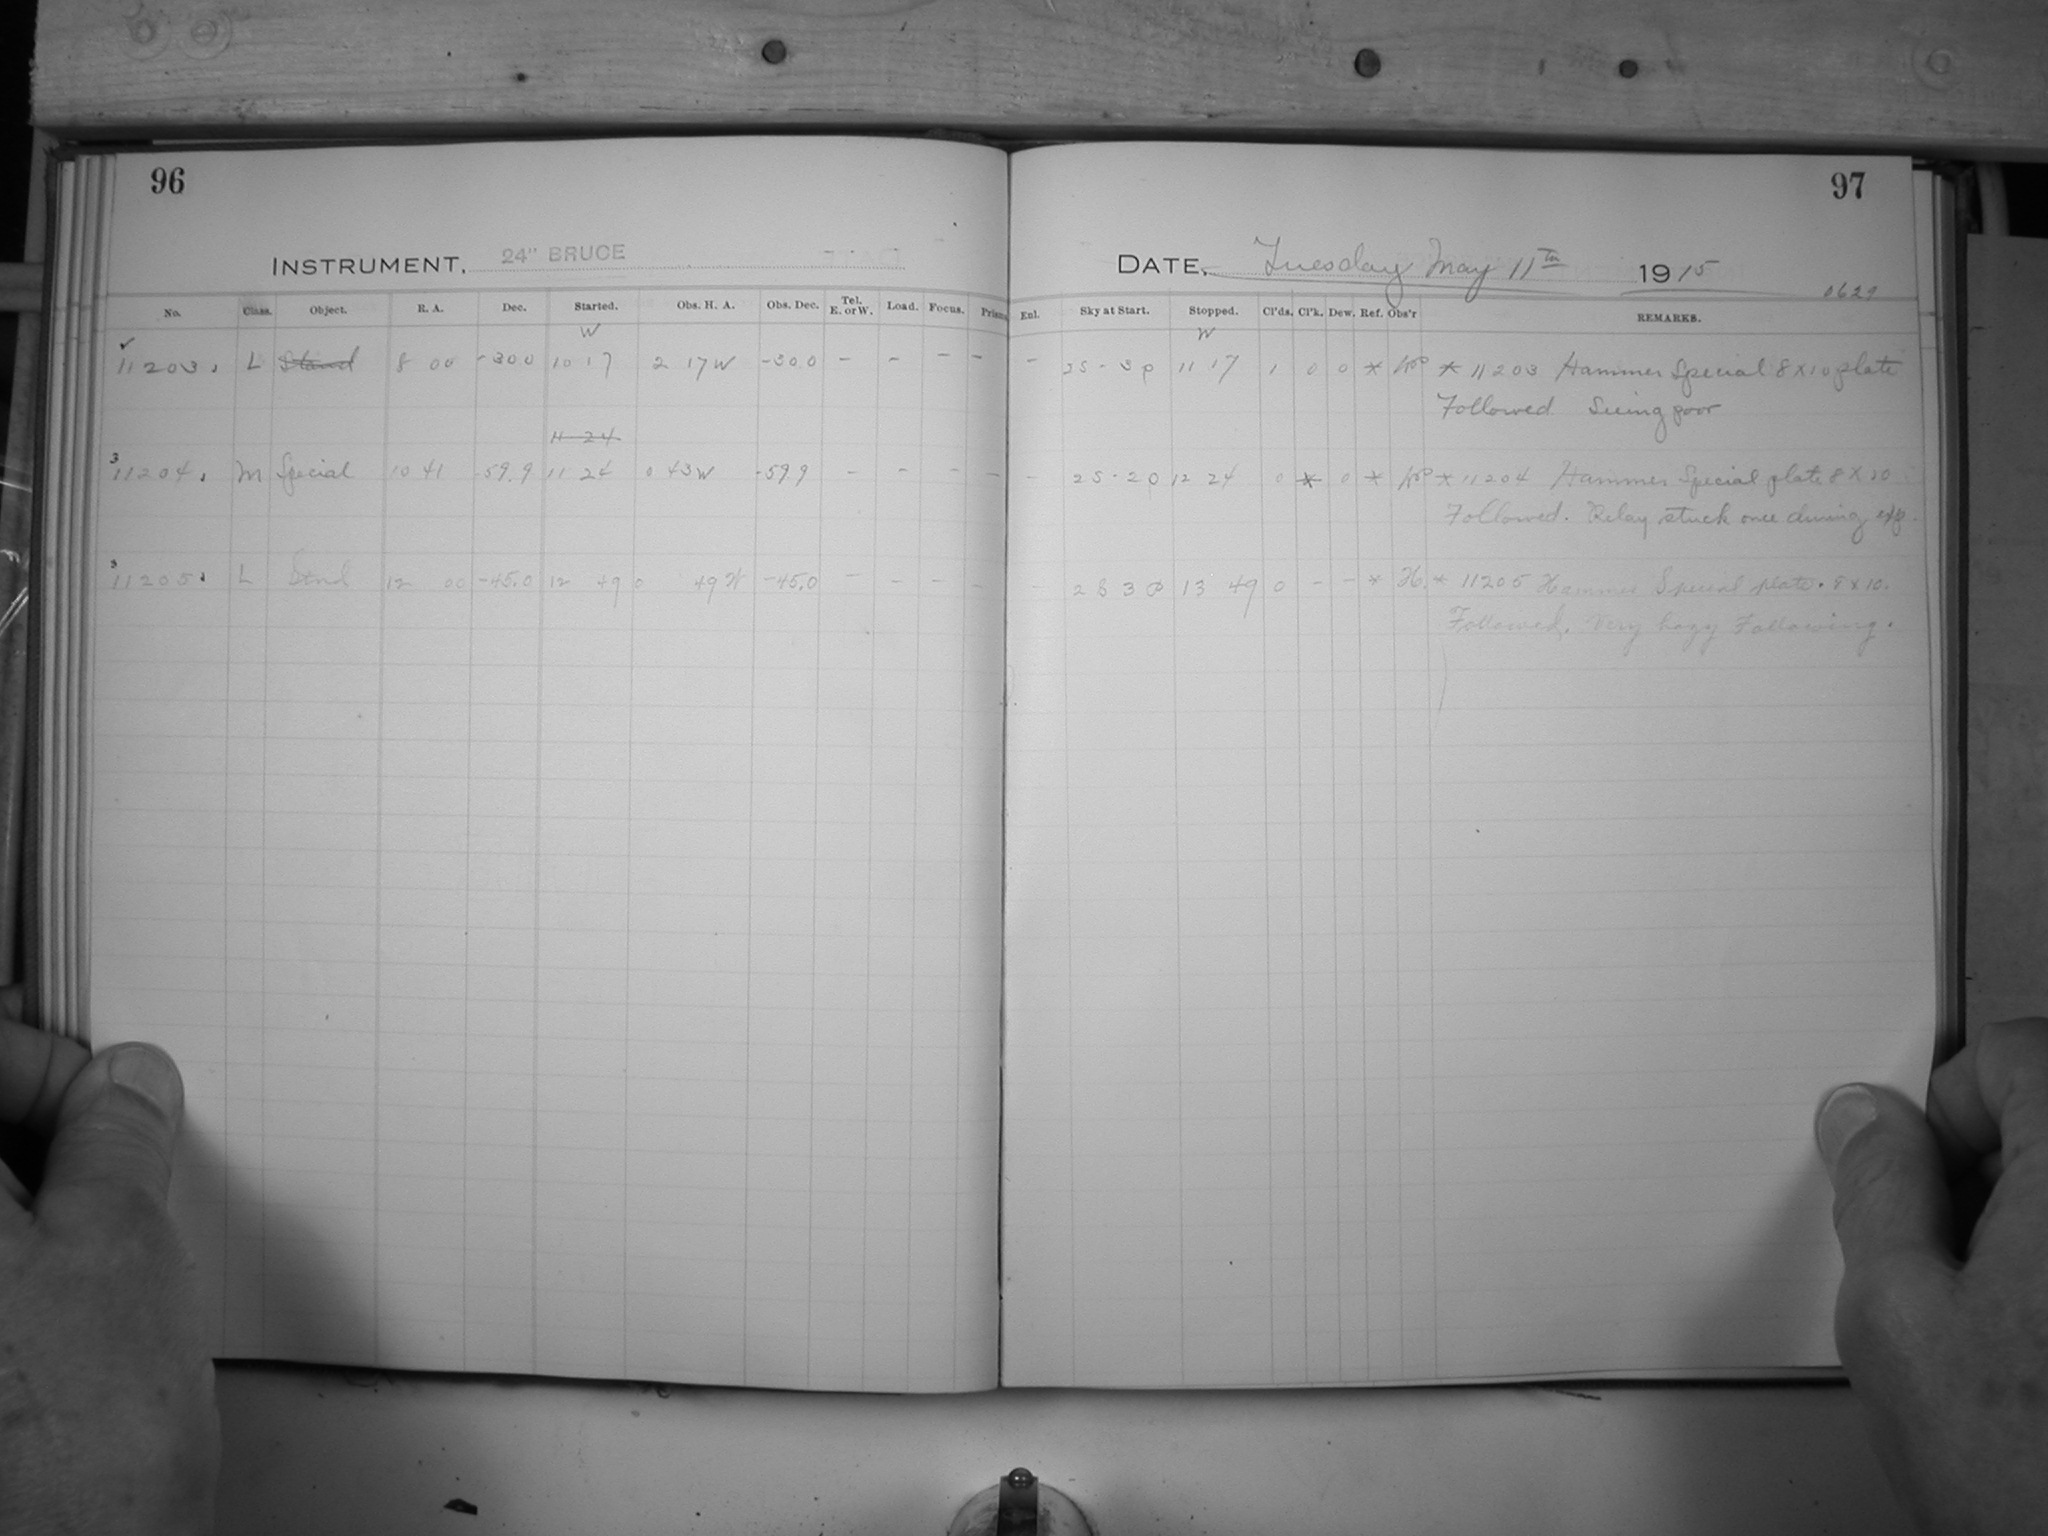 96
97
INSTRUMENT, 24" BRUCE
DATE, Tuesday May 11th 1915
0629
No. Class. Object. R. A. Dec. Started. Obs. H. A. Obs. Dec. Tel. E. or W. Load. Focus. Prism Enl. Sky at Start. Stopped. Cl'ds. Cl'k. Dew. Ref. Obs'r REMARKS.
W W
11203. L Stand 8 00 -30 0 10 17 2 17 W -30.0 - - - - - 2S - 3 P 11 17 1 0 0 * * 11203 Hammer Special 8 X 10 plate
Followed Seeing poor
11 24
3 11204. M Special 10 41 -59.9 11 24 0 43 W -59.9 - - - - - 2S - 2 0 12 24 0 * 0 * * 11204 Hammer Special plate 8 X 10
Followed. Relay stuck once during exp.
11205. L Stnd 12 00 -45.0 12 49 0 49 W -45.0 - - - - - 2 S 3 P 13 49 0 - - * H. * 11205 Hammer Special plate. 8 x 10.
Followed. Very hazy Following.